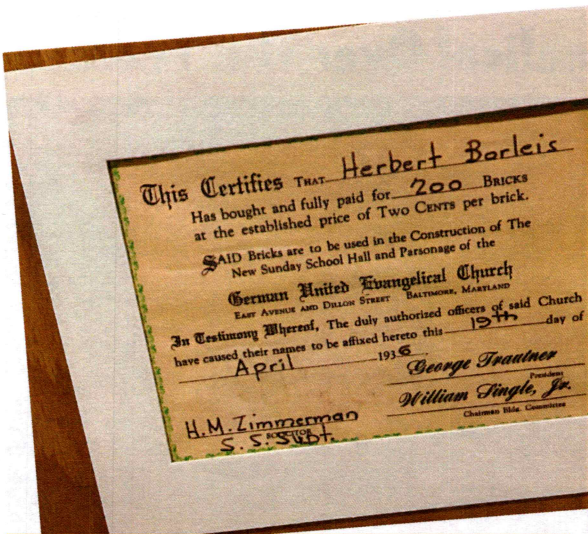 This Certifies THAT Herbert Borleis
Has bought and fully paid for 200 BRICKS
at the established price of TWO CENTS per brick.
SAID Bricks are to be used in the Construction of The
New Sunday School Hall and Parsonage of the
German United Evangelical Church
EAST AVENUE AND DILLON STREET BALTIMORE, MARYLAND
In Testimony Whereof, The duly authorized officers of said Church
have caused their names to be affixed hereto this 19th day of
April 1936
George Trautner
President
William Single, Jr.
Chairman Bldg. Committee
H.M. Zimmerman
SOLICITOR
S. S. Supt.